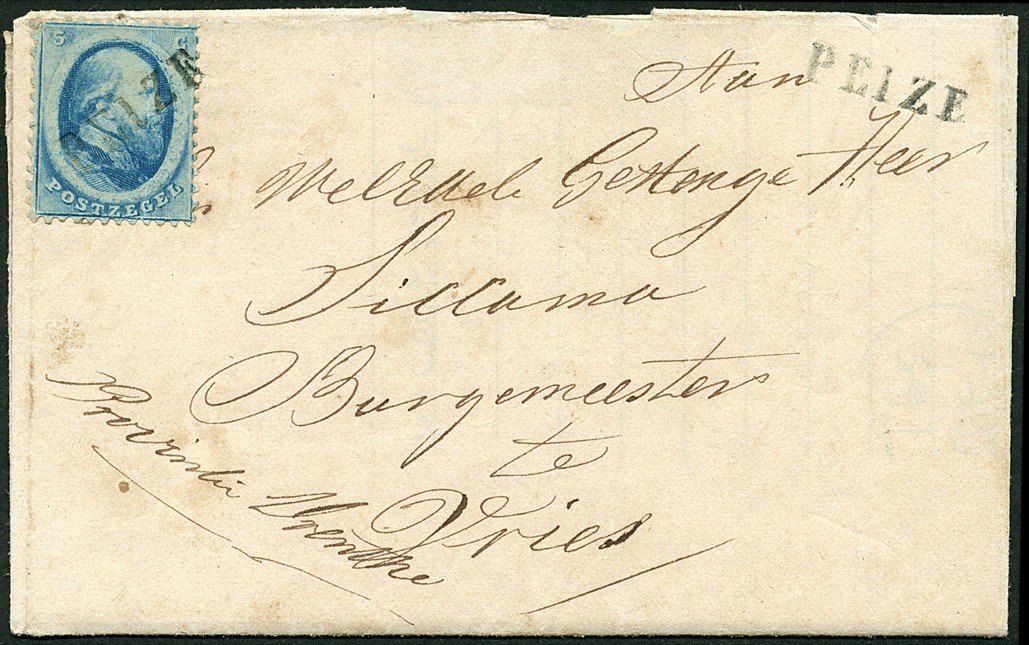 5 C
PEIZE
POSTZEGEL
PEIZE
Aan
WelEdele Gestrenge Heer
Sillama
Burgemeester
te
Vries
Provintie Drenthe